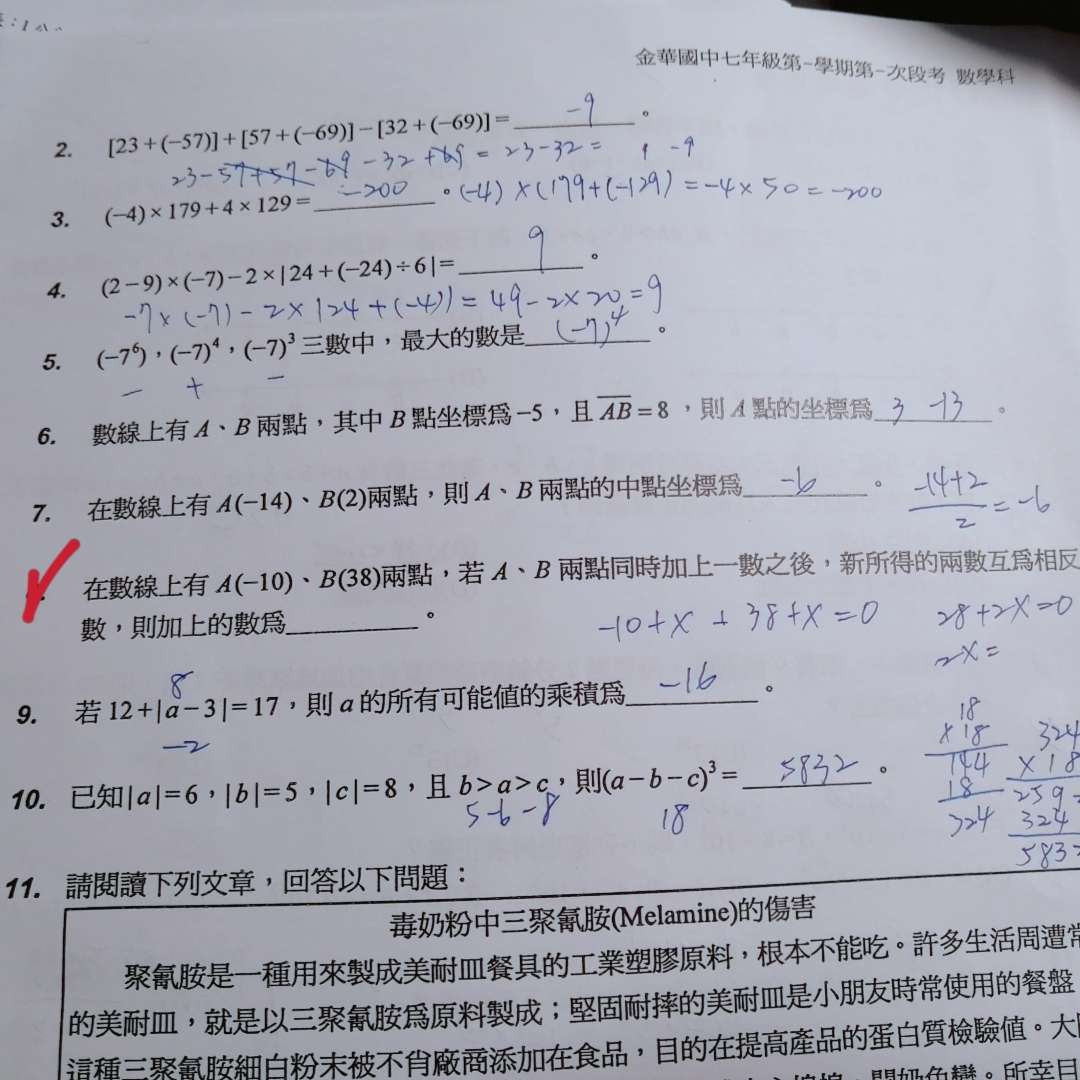 金華國中七年級第一學期第一次段考 數學科
2. [23+(−57)]+[57+(−69)]−[32+(−69)]= -9 。
23-57+57-69-32+69=23-32= -9
3. (−4)×179+4×129= -200 。(-4)×(179+(-129)=-4×50=-200
4. (2−9)×(−7)−2×|24+(−24)÷6|= 9 。
-7×(-7)-2×|24+(-4)|=49-2×20=9
5. (−7⁶),(−7)⁴,(−7)³三數中,最大的數是 (-7)⁴ 。
− + −
6. 數線上有 A、B 兩點,其中 B 點坐標爲 −5,且 AB=8,則 A 點的坐標爲 3 -13 。
7. 在數線上有 A(−14)、B(2)兩點,則 A、B 兩點的中點坐標爲 -6 。 -14+2/2=-6
在數線上有 A(−10)、B(38)兩點,若 A、B 兩點同時加上一數之後,新所得的兩數互爲相反
數,則加上的數爲 。 -10+x+38+x=0 28+2x=0
2x=
8
9. 若 12+|a−3|=17,則 a 的所有可能值的乘積爲 -16 。
-2
10. 已知|a|=6,|b|=5,|c|=8,且 b>a>c,則(a−b−c)³= 5832 。
5 -6 -8 18
18
×18
144
18
324
324
×18
324
11. 請閱讀下列文章,回答以下問題:
毒奶粉中三聚氰胺(Melamine)的傷害
聚氰胺是一種用來製成美耐皿餐具的工業塑膠原料,根本不能吃。許多生活周遭常
的美耐皿,就是以三聚氰胺爲原料製成;堅固耐摔的美耐皿是小朋友時常使用的餐盤
這種三聚氰胺細白粉末被不肖廠商添加在食品,目的在提高產品的蛋白質檢驗值。大